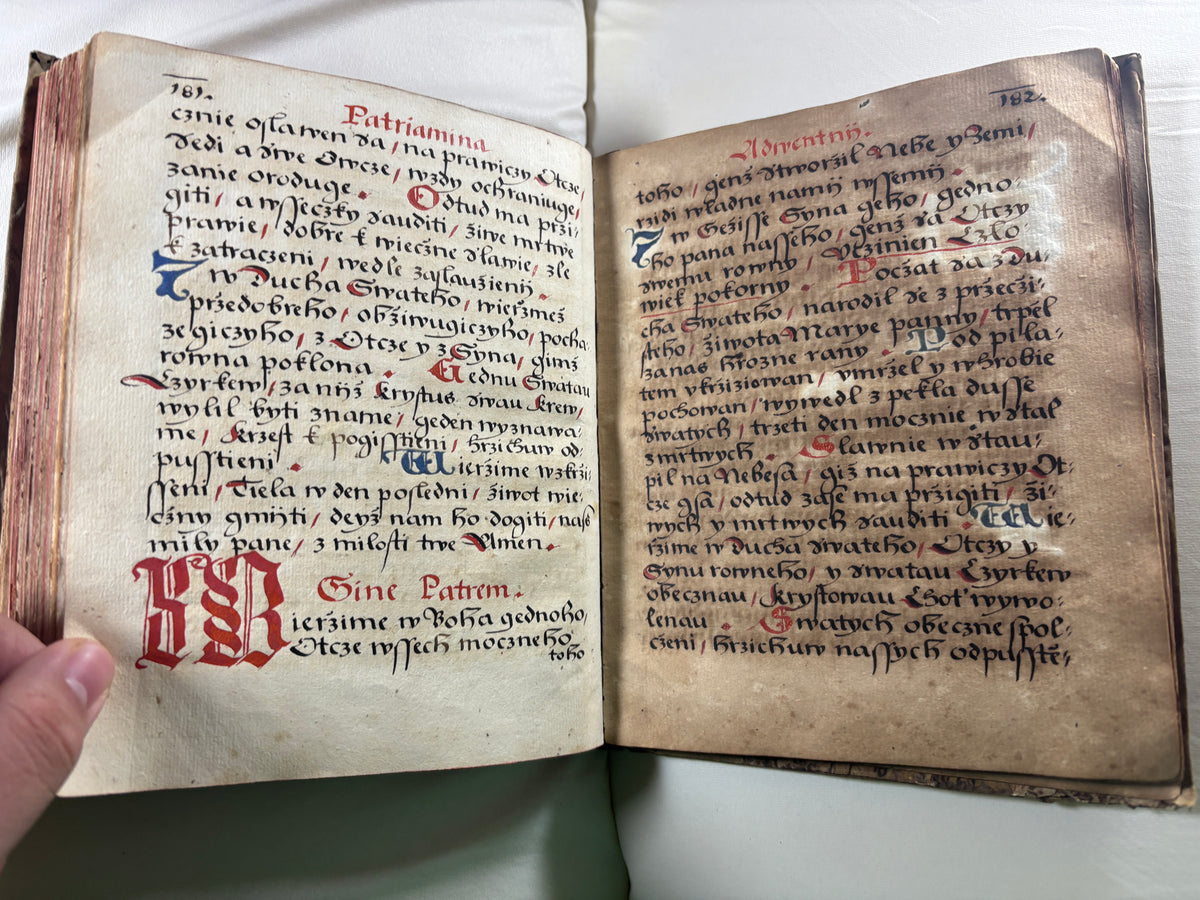 181.
Patriamina
cznie oslawen sa / na prawiczy Otcze /
sedi a dwe Owcze / wzdy ochraniuge /
zanie oroduge . Odtud ma przi-
giti / a wsseczky sauditi / žiwe mrtwe
prawie / dobre k wiečzne slawie / zle
k zatraczeni / wedle zaslaužienij .
I w Ducha Swateho / wieržmež
przedobreho / obžiwugiczyho / pocha-
zegiczyho / z Otcze y z Syna / gimž
rowna poklona . Gednu Swatau
Czyrkew / za nijž krystus swau krew /
wylil byti zname / geden wyznawa-
me / krzest k pogisstieni / hrzichuw od-
pusstieni . Wieržime wzkrži-
sseni / Tiela w den posledni / žiwot wie-
czny gmijti / deyž nam ho dogiti / nass
mily pane / z milosti twe Amen .
Gine Patrem .
Wieržime w Boha gednoho /
Otcze wssech mocžneho
toho
182.
Adwentnij .
toho / genž stworžil Nebe y Zemi /
rzidi wladne namij wssemij .
I w Gežisse Syna geho / gedno-
ho pana nasseho / genž sa Otczy
swemu rowny / Vczinien Czlo-
wiek pokorny . Pocžat sa z du-
cha Swateho / narodil se z przeczi-
steho / žiwota Marye panny / trpel
zanas hrozne rany . Pod pila-
tem vkržižowan / vmržel y w hrobie
pochowan / wywedl z pekla dusse
swatych / trzeti den mocnie w stal
z mrtwych . Slawnie w stau-
pil na Nebesa / giž na prawiczy Ot-
cze gsa / odtud zase ma przigiti / ži-
wych y mrtwych sauditi . Wie-
ržime w Ducha swateho / Otczy y
Synu rowneho / y swatau Czyrkew
obecznau / krystowau Chot wywo-
lenau . Swatych obeczne spol-
czeni / hrzichuw nassych odpusstě-